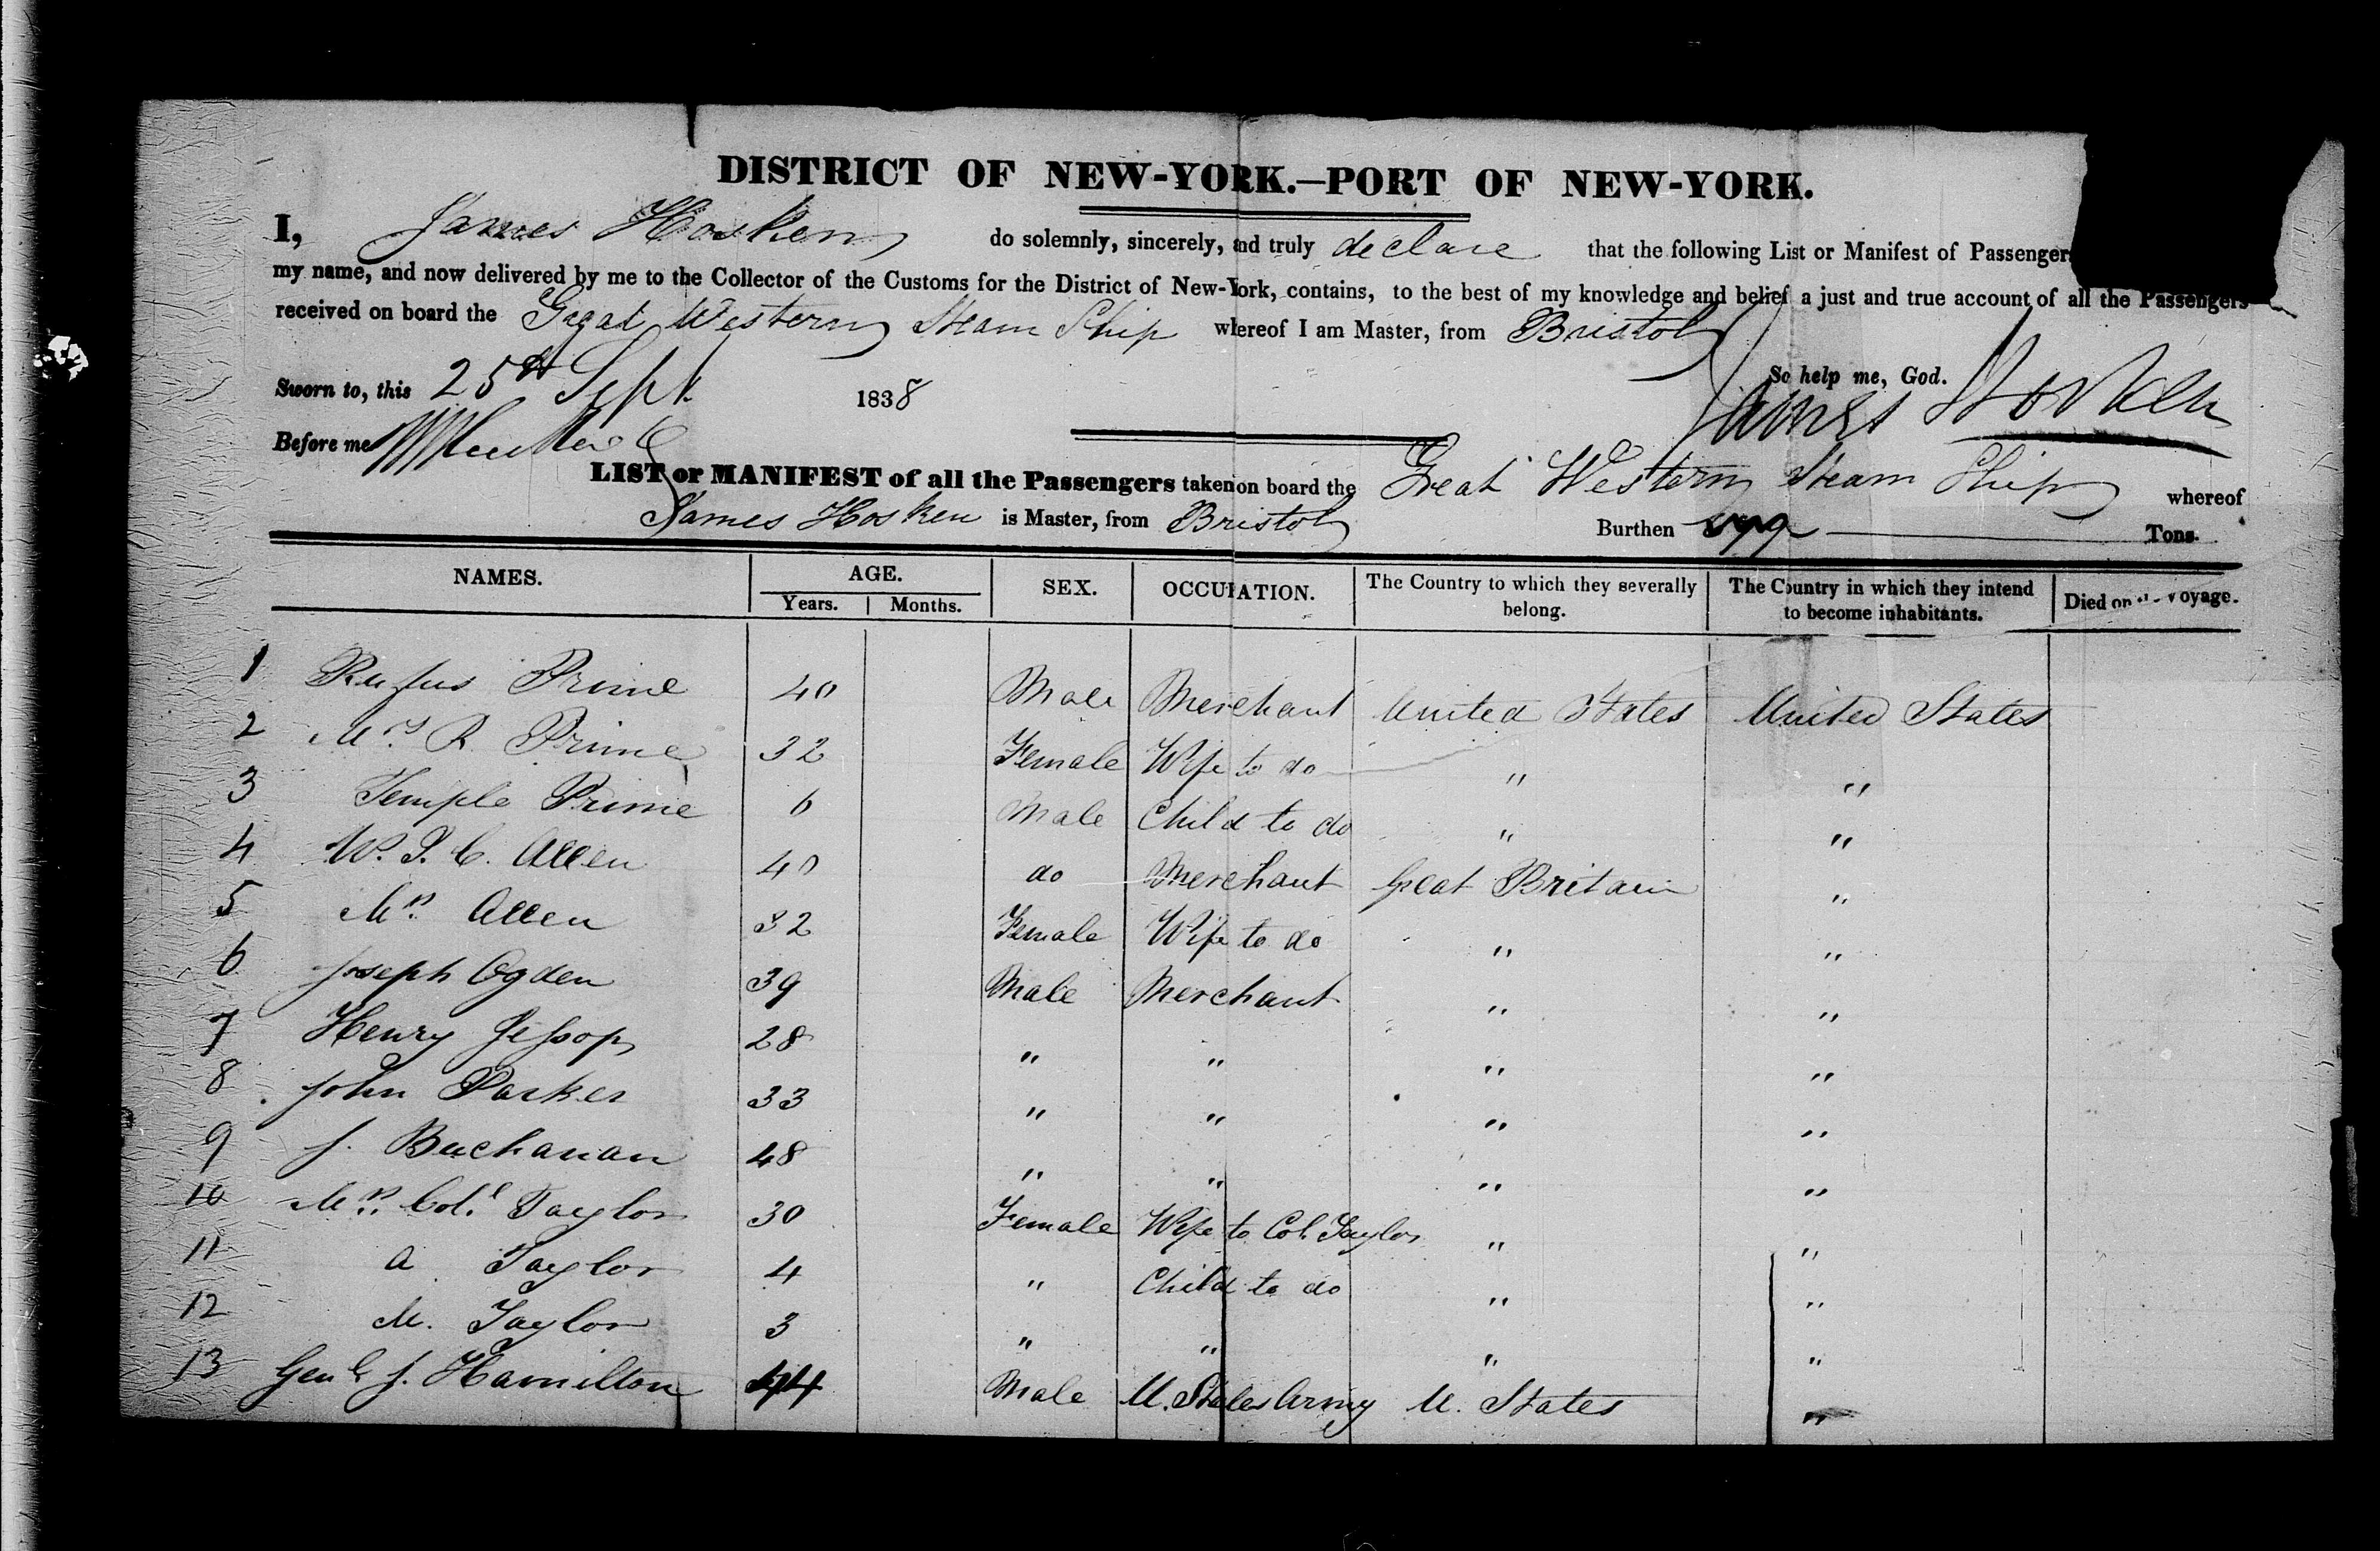 DISTRICT OF NEW-YORK.—PORT OF NEW-YORK.
I, James Hosken do solemnly, sincerely, and truly declare that the following List or Manifest of Passengers
my name, and now delivered by me to the Collector of the Customs for the District of New-York, contains, to the best of my knowledge and belief a just and true account of all the Passengers
received on board the Great Western Steam Ship whereof I am Master, from Bristol
So help me, God.
Sworn to, this 25th Sept. 1838
James Hosken
Before me
LIST or MANIFEST of all the Passengers taken on board the Great Western Steam Ship whereof
James Hosken is Master, from Bristol Burthen Tons.
NAMES. AGE. Years. Months. SEX. OCCUPATION. The Country to which they severally belong. The Country in which they intend to become inhabitants. Died on the voyage.
1 Rufus Prime 40 Male Merchant United States United States
2 Mrs. R Prime 32 Female Wife to do " "
3 Temple Prime 6 Male Child to do " "
4 W. S. C. Allen 40 do Merchant Great Britain "
5 Mrs. Allen 32 Female Wife to do " "
6 Joseph Ogden 39 Male Merchant " "
7 Henry Jessop 28 " " " "
8 John Parker 33 " " " "
9 J. Buchanan 48 " " " "
10 Mrs. Col. Taylor 30 Female Wife to Col. Taylor " "
11 A Taylor 4 " Child to do " "
12 M. Taylor 3 " " " "
13 Genl J. Hamilton 44 Male U. States Army U. States "